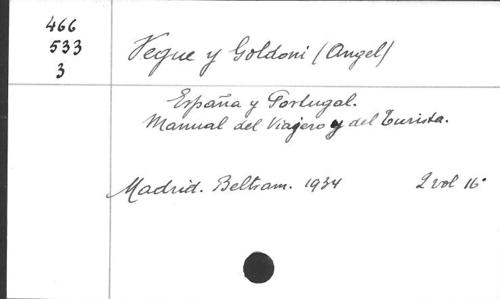 466
533
3
Vegue y Goldoni (Angel)
España y Portugal.
Manual del Viajero y del Turista.
Madrid. Beltram. 1934 2 vol 16º